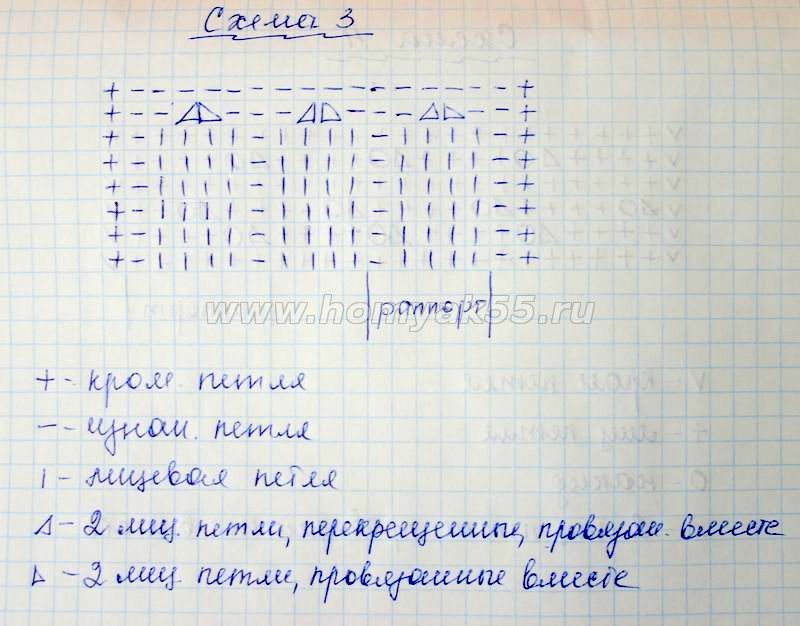 Схема 3
+ - - - - - - - - - - - - - - - - +
+ - - ⊿ ◺ - - - ⊿ ◺ - - - ⊿ ◺ - - +
+ - | | | | - | | | | - | | | | - +
+ - | | | | - | | | | - | | | | - +
+ - | | | | - | | | | - | | | | - +
+ - | | | | - | | | | - | | | | - +
+ - | | | | - | | | | - | | | | - +
+ - | | | | - | | | | - | | | | - +
|раппорт|
www.homyak55.ru
+ - кром. петля
− - изнан. петля
| - лицевая петля
⊿ - 2 лиц. петли, перекрещенные, провязан. вместе
◺ - 2 лиц. петли, провязанные вместе